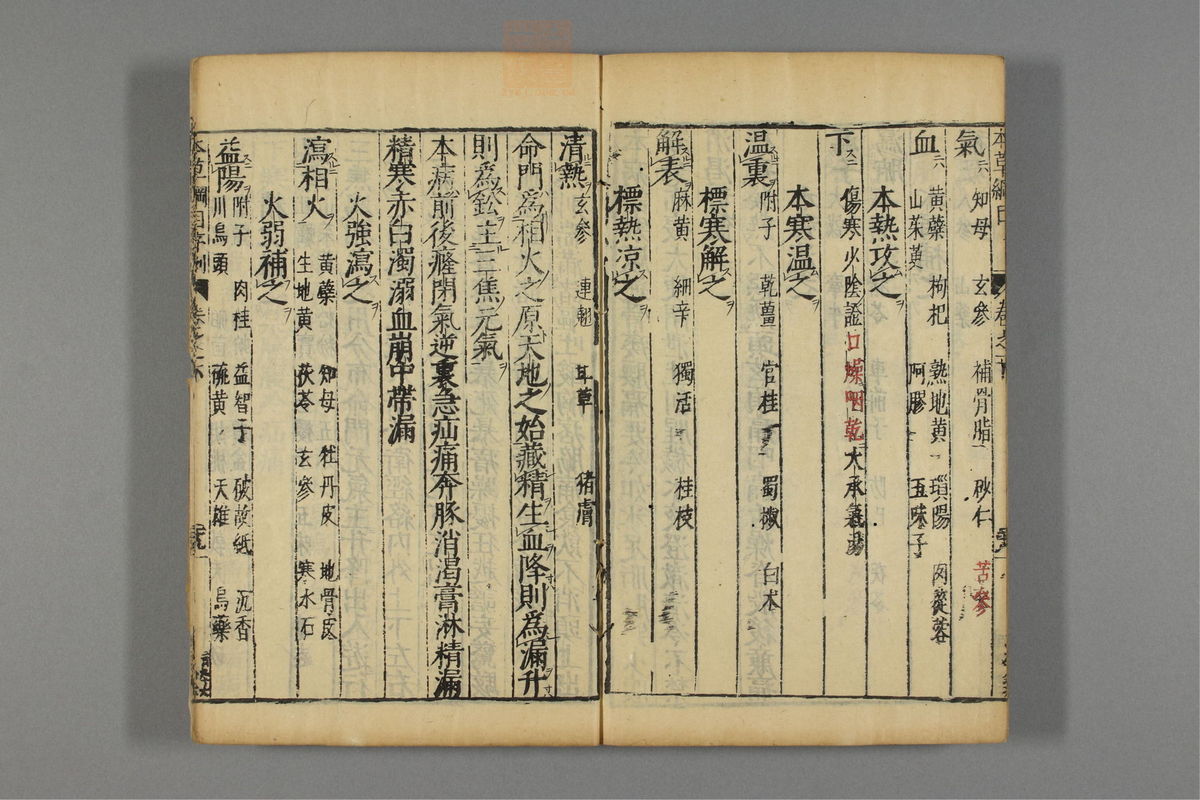 氣 知母 玄參 補骨脂 砂仁 苦參
血 黄蘗 枸杞 熟地黄 瑣陽 肉蓯蓉
山茱萸 阿膠 五味子
本熱攻之
下 傷寒少陰證口燥咽乾大承氣湯
本寒温之
温裏 附子 乾薑 官桂 蜀椒 白术
標寒解之
解表 麻黄 細辛 獨活 桂枝
標熱凉之
清熱 玄參 連翹 甘草 猪膚
命門爲相火之原天地之始藏精生血降則爲漏升
則爲鈆主三焦元氣
本病前後癃閉氣逆裏急疝痛奔豚消渴膏淋精漏
精寒赤白濁溺血崩中帶漏
火強瀉之
瀉相火 黄蘗 知母 牡丹皮 地骨皮
生地黄 茯苓 玄參 寒水石
火弱補之
益陽 附子 肉桂 益智子 破故紙 沉香
川烏頭 硫黄 天雄 烏藥
本草綱目序例 卷之